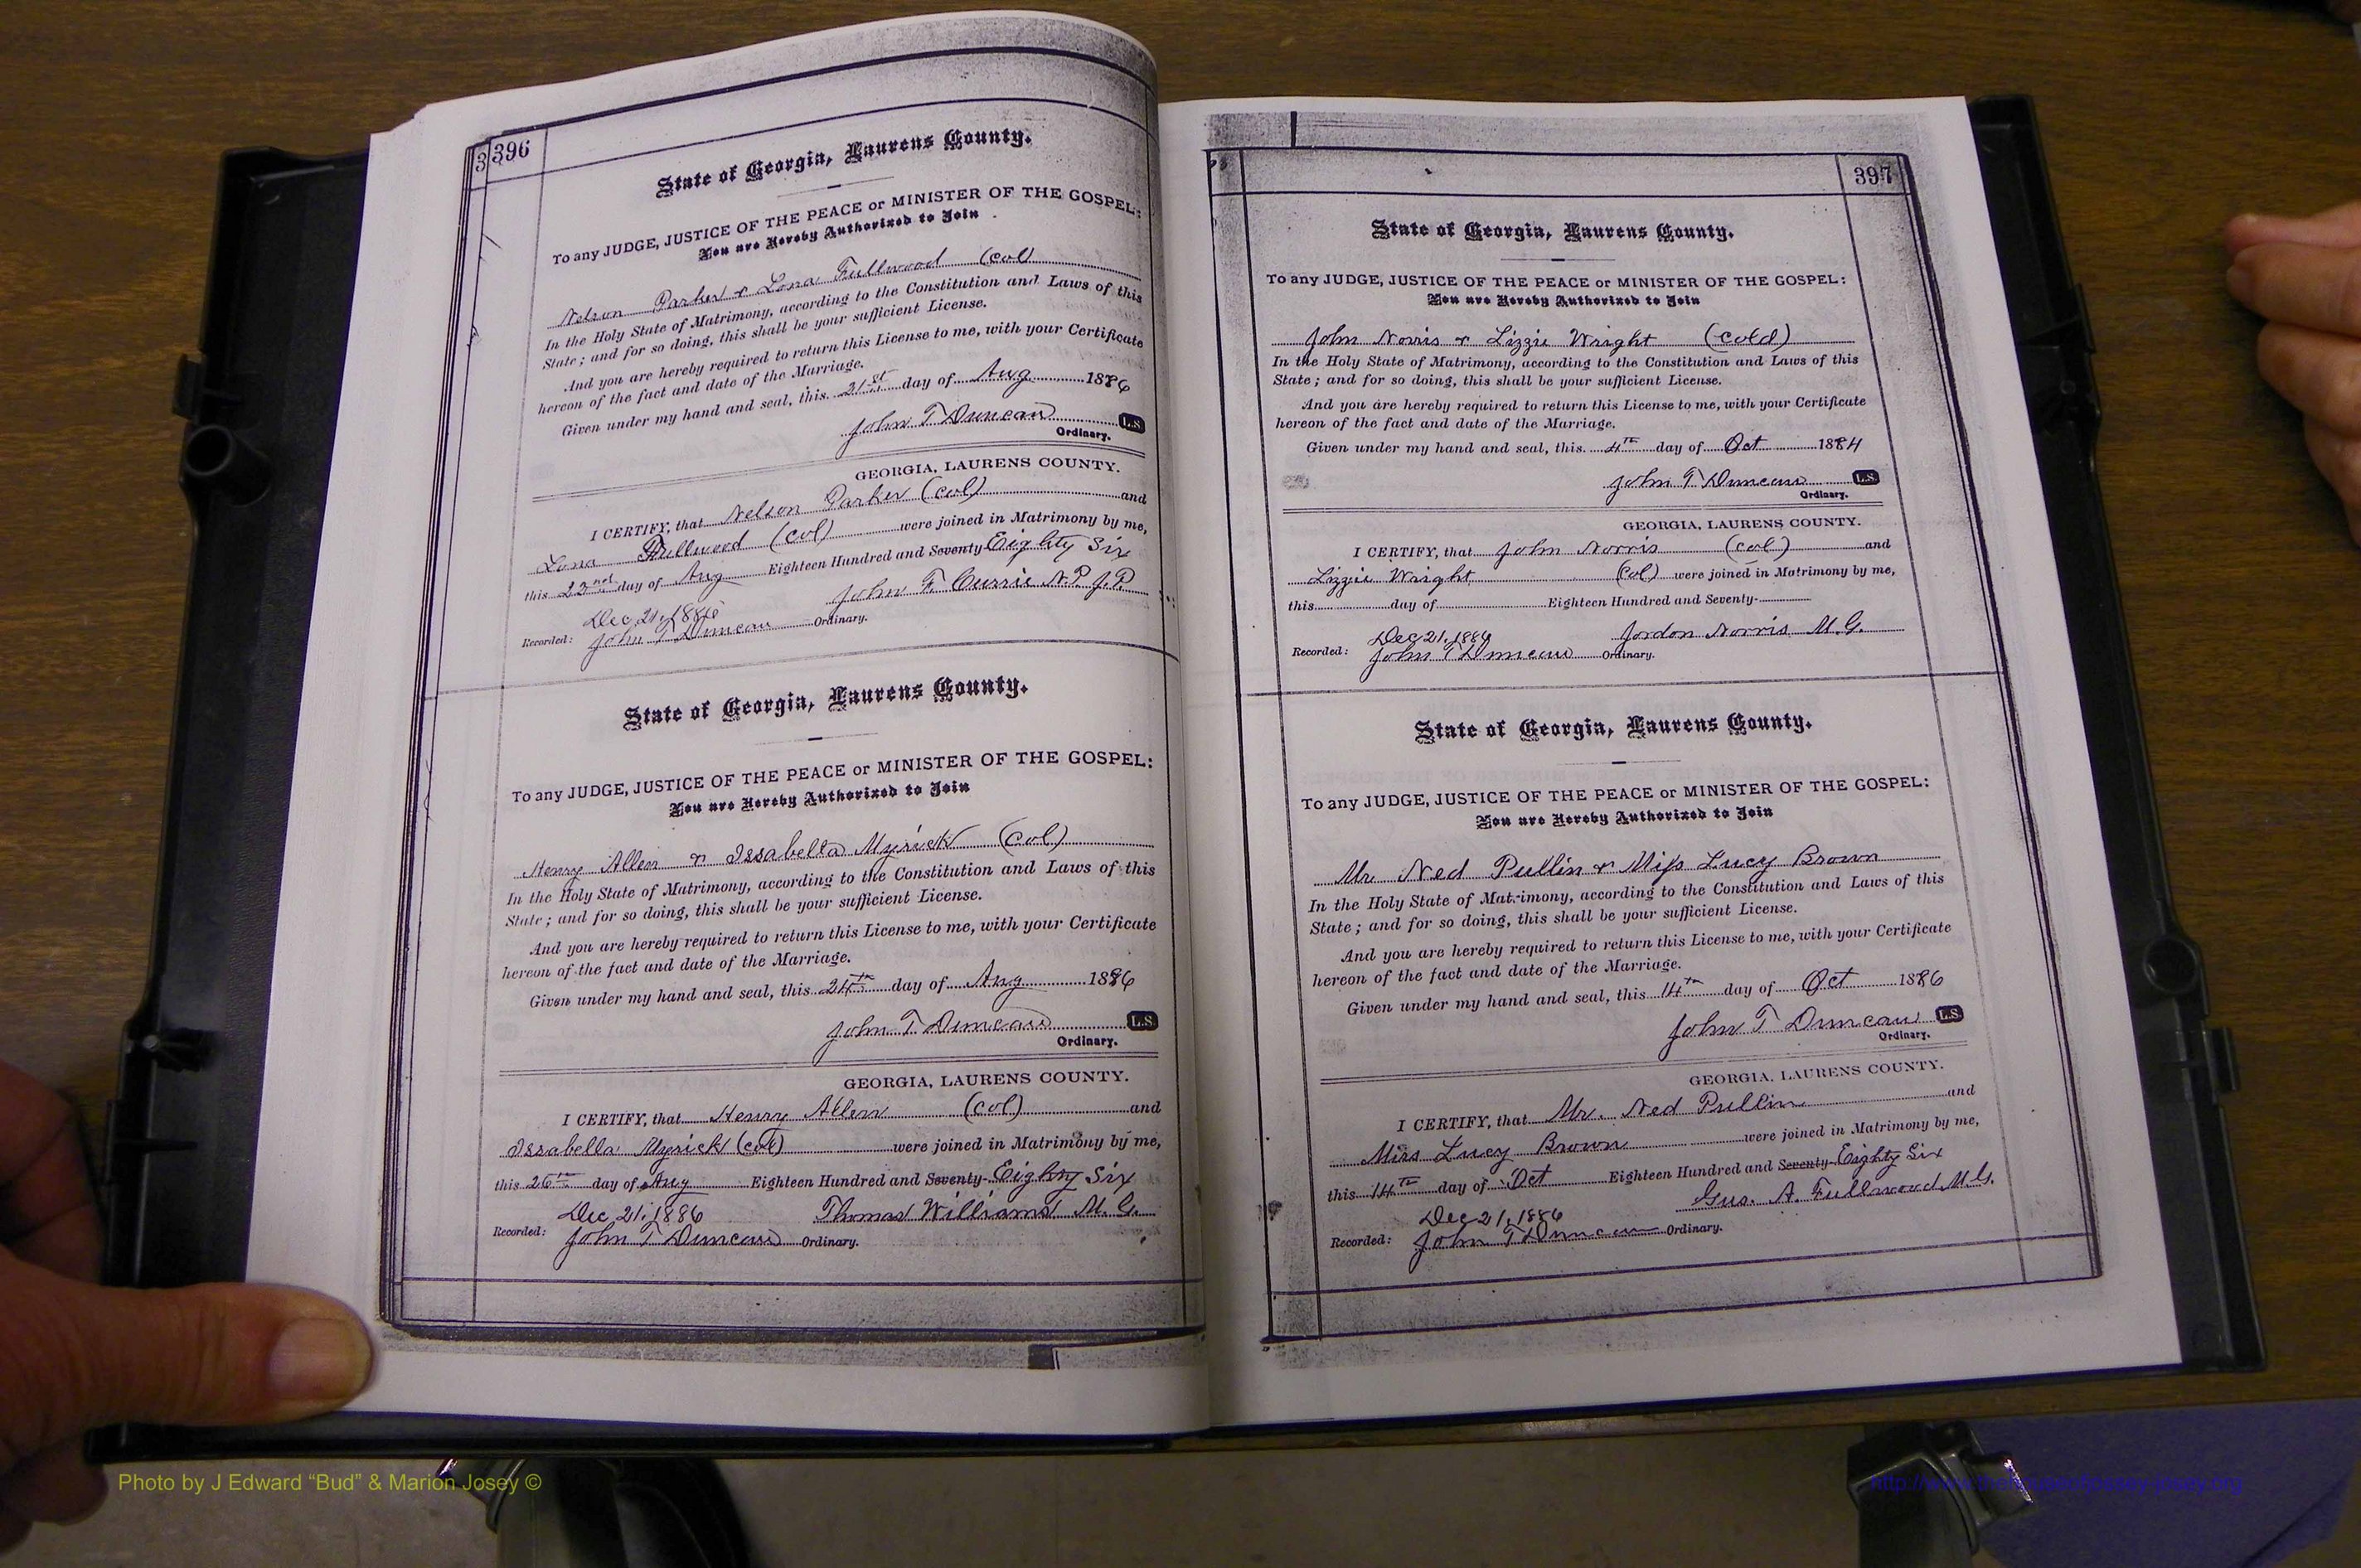 3 396
State of Georgia, Laurens County.
To any JUDGE, JUSTICE OF THE PEACE or MINISTER OF THE GOSPEL:
You are Hereby Authorized to Join
Nelson Parker & Lona Fullwood (col)
In the Holy State of Matrimony, according to the Constitution and Laws of this
State; and for so doing, this shall be your sufficient License.
And you are hereby required to return this License to me, with your Certificate
hereon of the fact and date of the Marriage.
Given under my hand and seal, this 21st day of Aug 1886
John T Duncan L.S.
Ordinary.
GEORGIA, LAURENS COUNTY.
I CERTIFY, that Nelson Parker (col) and
Lona Fullwood (col) were joined in Matrimony by me,
this 22nd day of Aug Eighteen Hundred and Seventy- Eighty Six
John F. Currie N.P. J.P.
Dec, 21, 1886
Recorded: John T Duncan Ordinary.
State of Georgia, Laurens County.
To any JUDGE, JUSTICE OF THE PEACE or MINISTER OF THE GOSPEL:
You are Hereby Authorized to Join
Henry Allen & Issabella Myrick (col)
In the Holy State of Matrimony, according to the Constitution and Laws of this
State; and for so doing, this shall be your sufficient License.
And you are hereby required to return this License to me, with your Certificate
hereon of the fact and date of the Marriage.
Given under my hand and seal, this 24th day of Aug 1886
John T Duncan L.S.
Ordinary.
GEORGIA, LAURENS COUNTY.
I CERTIFY, that Henry Allen (col) and
Issabella Myrick (col) were joined in Matrimony by me,
this 26th day of Aug Eighteen Hundred and Seventy- Eighty Six
Dec, 21, 1886 Thomas Williams M. G.
Recorded: John T Duncan Ordinary.
397
State of Georgia, Laurens County.
To any JUDGE, JUSTICE OF THE PEACE or MINISTER OF THE GOSPEL:
You are Hereby Authorized to Join
John Norris & Lizzie Wright (cold)
In the Holy State of Matrimony, according to the Constitution and Laws of this
State; and for so doing, this shall be your sufficient License.
And you are hereby required to return this License to me, with your Certificate
hereon of the fact and date of the Marriage.
Given under my hand and seal, this 4th day of Oct 1884
John T Duncan L.S.
Ordinary.
GEORGIA, LAURENS COUNTY.
I CERTIFY, that John Norris (col) and
Lizzie Wright (col) were joined in Matrimony by me,
this day of Eighteen Hundred and Seventy-
Dec 21, 1886 Jordon Norris M. G.
Recorded: John T Duncan Ordinary.
State of Georgia, Laurens County.
To any JUDGE, JUSTICE OF THE PEACE or MINISTER OF THE GOSPEL:
You are Hereby Authorized to Join
Mr Ned Pullin & Miss Lucy Brown
In the Holy State of Matrimony, according to the Constitution and Laws of this
State; and for so doing, this shall be your sufficient License.
And you are hereby required to return this License to me, with your Certificate
hereon of the fact and date of the Marriage.
Given under my hand and seal, this 14th day of Oct 1886
John T Duncan L.S.
Ordinary.
GEORGIA, LAURENS COUNTY.
I CERTIFY, that Mr. Ned Pullin and
Miss Lucy Brown were joined in Matrimony by me,
this 14th day of Oct Eighteen Hundred and Seventy- Eighty Six
Gus. A. Fullwood M.G.
Dec 21, 1886
Recorded: John T Duncan Ordinary.
Photo by J Edward “Bud” & Marion Josey ©